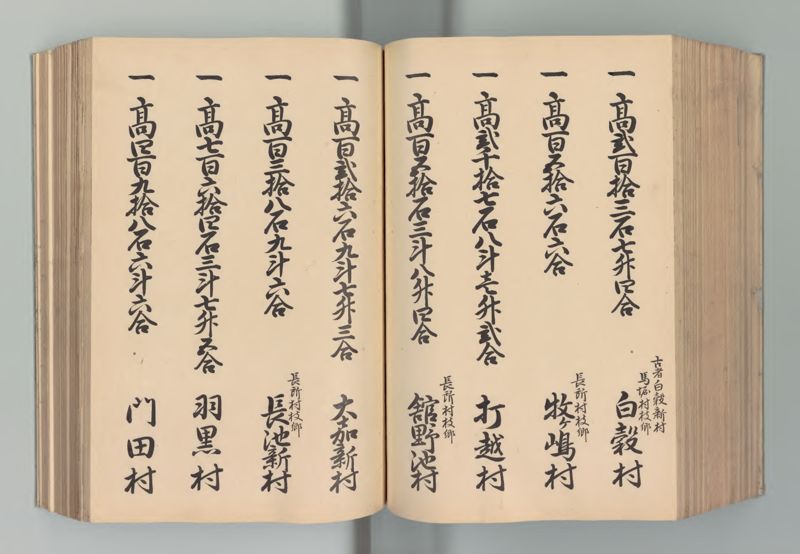 一 高弐百拾三石七升四合
古者白穀新村
馬堀村枝郷
白穀村
一 高百五拾六石六合
長所村枝郷
牧ヶ嶋村
一 高弐千拾七石八斗壱升弐合
打越村
一 高百五拾石三斗八升四合
長所村枝郷
舘野池村
一 高百弐拾六石九斗七升三合
大加新村
一 高百三拾八石九斗六合
長所村枝郷
長池新村
一 高七百六拾四石三斗七升五合
羽黒村
一 高四百九拾八石六斗六合
門田村